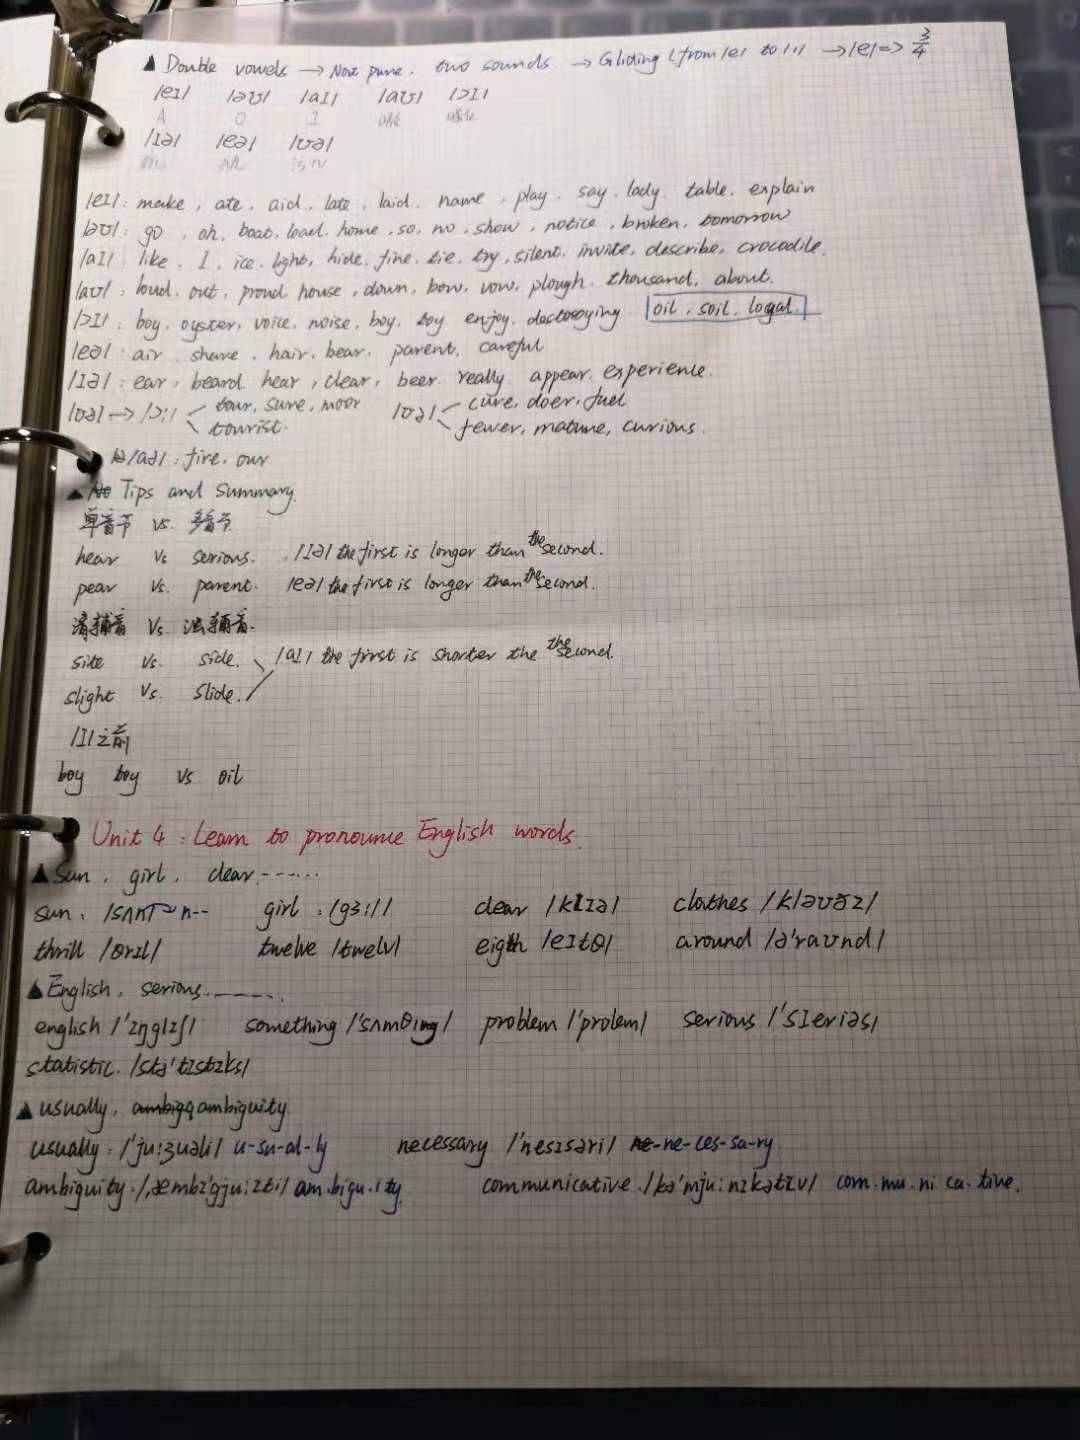 ▲ Double vowels → Not pure. two sounds → Gliding (from /e/ to /ɪ/) → /e/ => 3/4
/eɪ/ /əʊ/ /aɪ/ /aʊ/ /ɔɪ/
A O I
/ɪə/ /eə/ /ʊə/
/eɪ/: make, ate, aid, late, laid, name, play, say, lady, table, explain
/əʊ/: go, oh, boat, load, home, so, no, show, notice, broken, tomorrow
/aɪ/ like, I, ice, light, hide, fine, tie, try, silent, invite, describe, crocodile.
/aʊ/: loud, out, proud house, down, bow, vow, plough, thousand, about.
/ɔɪ/. boy, oyster, voice, noise, boy, toy enjoy, oil, soil,
/eə/: air share, hair, bear, parent, careful
/ɪə/: ear, beard hear, clear, beer really appear experience.
/ʊə/ → /ɔ:/ tour, sure, moor /ʊə/ cure, doer, fuel
tourist. fewer, mature, curious.
/aə/: fire, our
▲ Tips and Summary.
单音节 vs. 多音节
hear vs serious. /ɪə/ the first is longer than the second.
pear vs. parent. /eə/ the first is longer than the second.
清辅音 vs. 浊辅音.
site vs. side. /aɪ/ the first is shorter the the second.
slight vs. slide.
/l/之前
boy toy vs oil
Unit 4: Learn to pronounce English words.
▲ Sun, girl, clear, ------
sun: /sʌn/ n-- girl: /gɜ:l/ clear /klɪə/ clothes /kləʊðz/
thrill /θrɪl/ twelve /twelv/ eigth /eɪtθ/ around /ə'raʊnd/
▲ English, serious ------.
english /'ɪŋglɪʃ/ something /'sʌmθɪŋ/ problem /'prolem/ serious /'sɪeriəs/
statistic. /stə'tɪstɪks/
▲ usually, ambiguity
usually: /'ju:ʒuəli/ u-su-al-ly necessary /'nesɪsəri/ ne-ces-sa-ry
ambiguity. /,æmbɪ'gju:ɪti/ am.bigu.i ty. communicative. /kə'mju:nɪkətɪv/ com.mu.ni ca.tive.